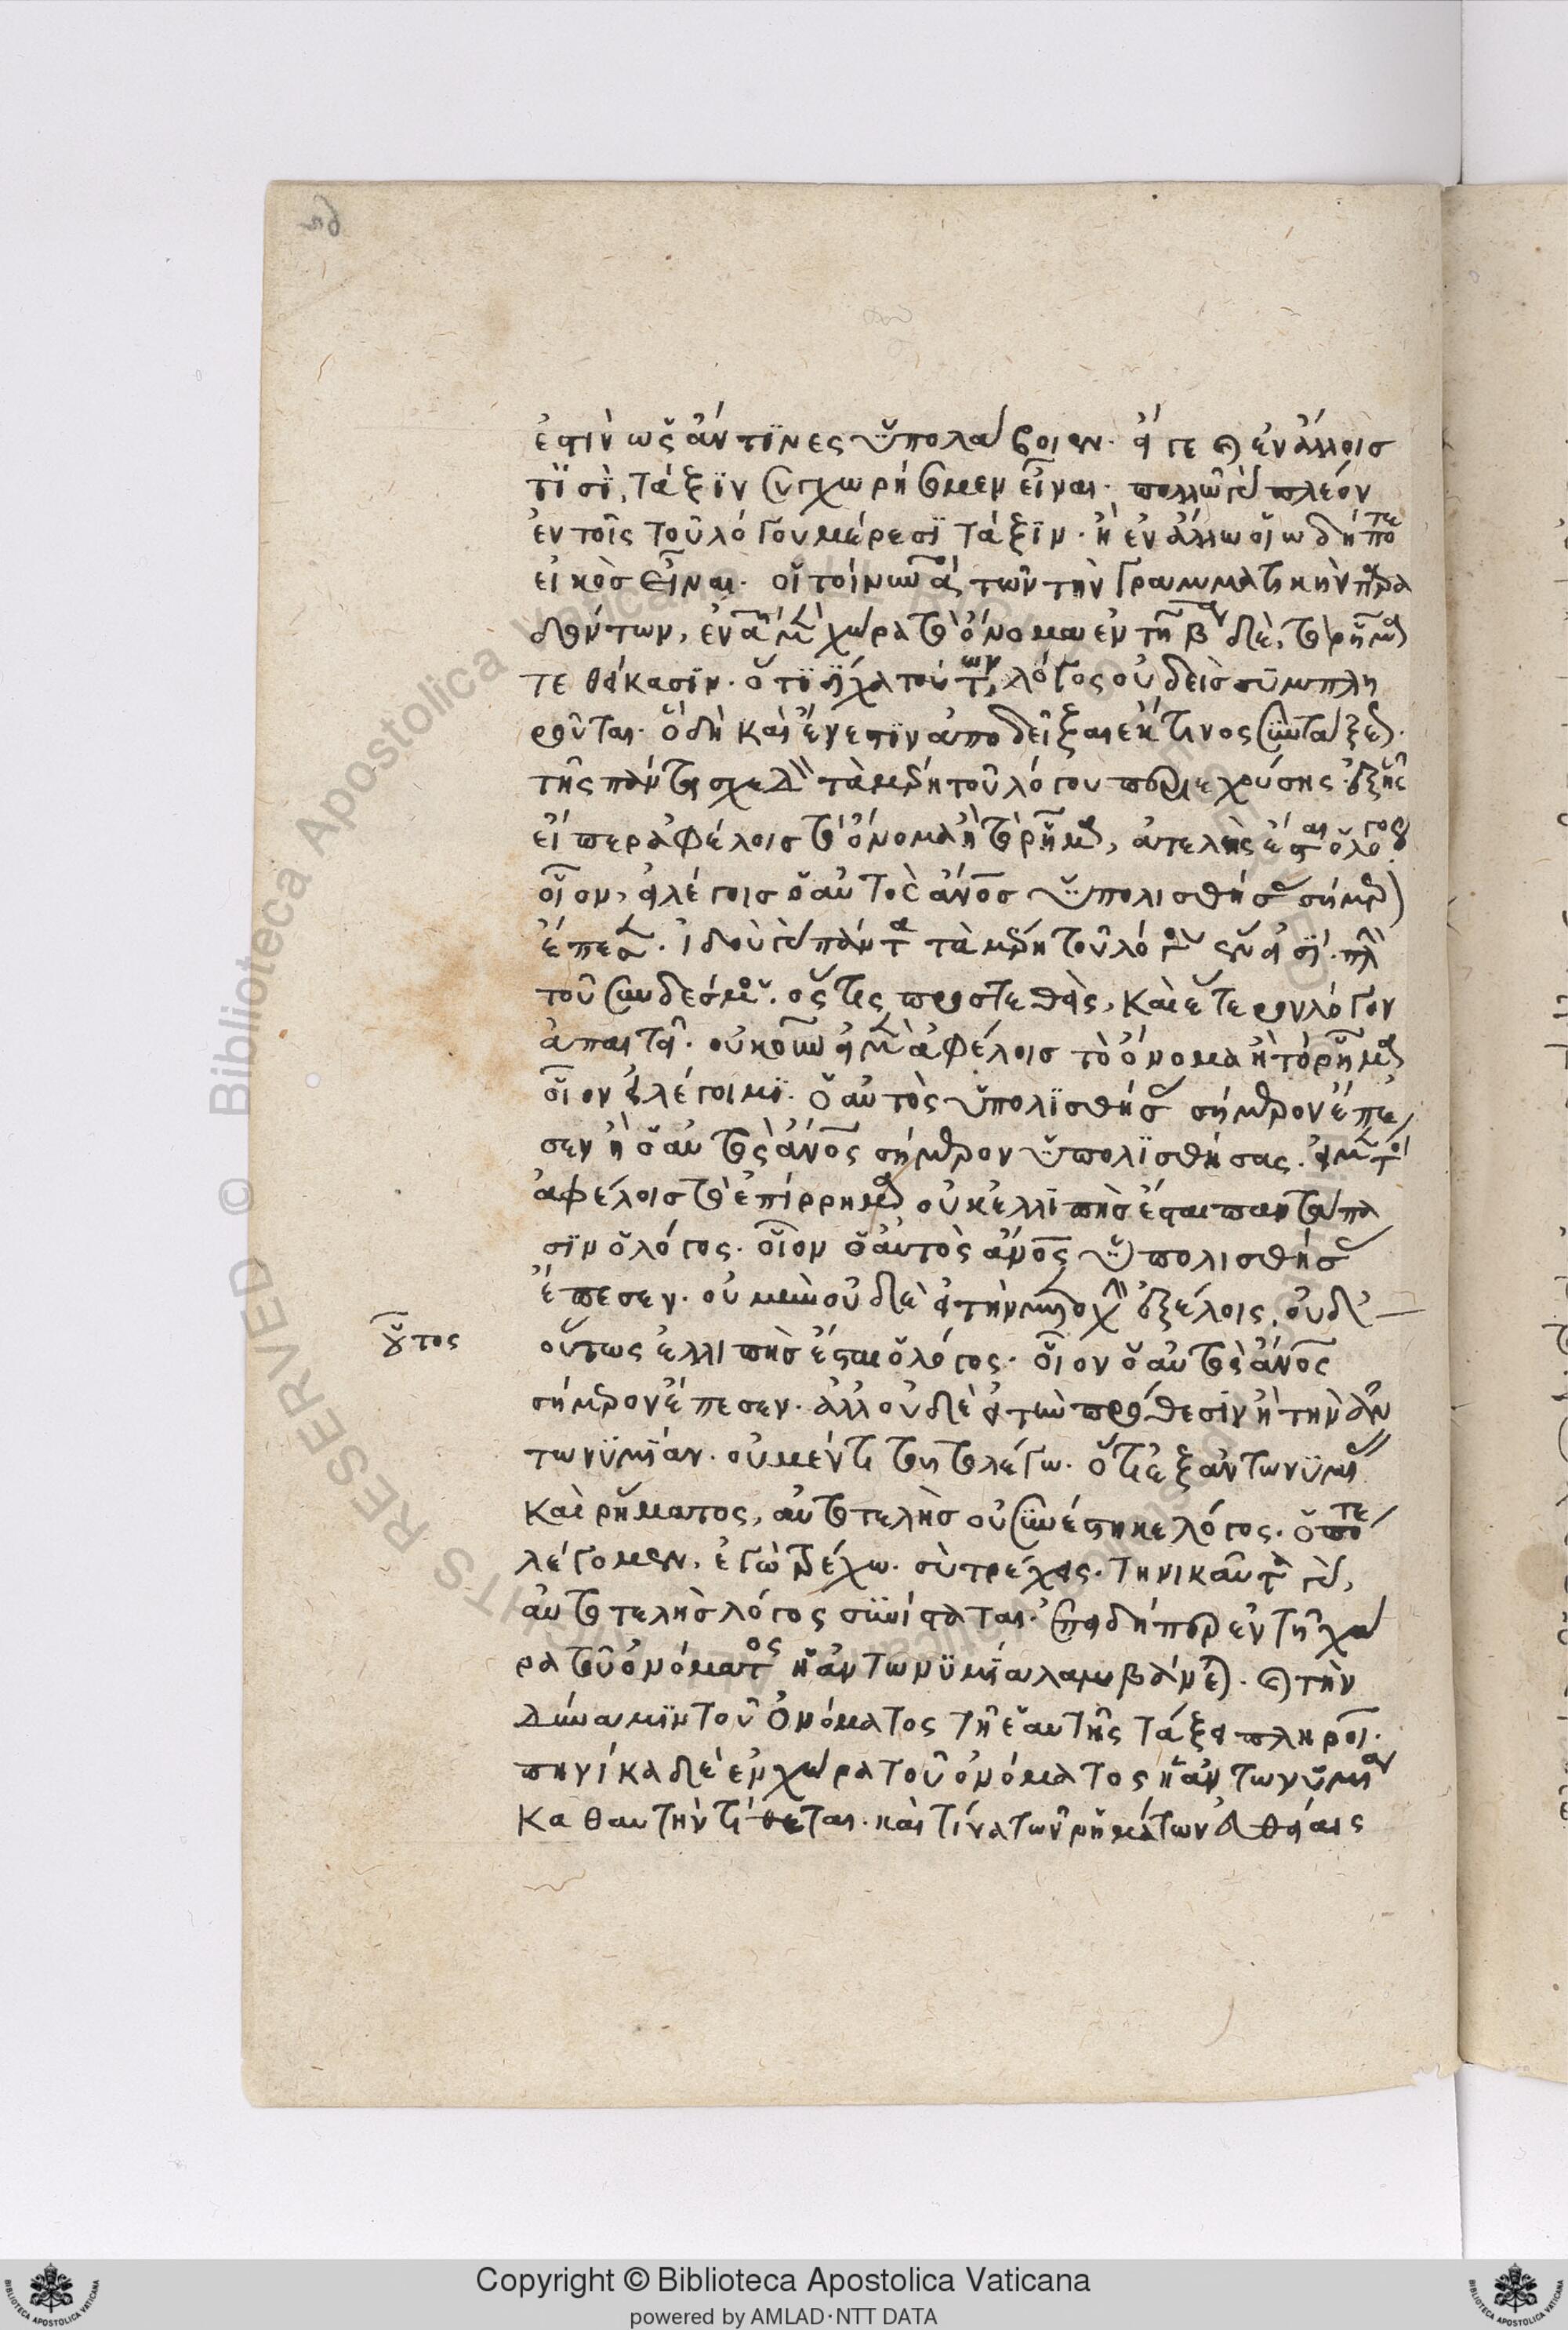 ἐστὶν ὡς ἄν τινες ὑπολάβοιεν. εἴ γε καὶ ἐν ἄλλοις
τισὶ, τάξιν συγχωρήσομεν εἶναι. πολλῶ γε πλέον
ἐν τοῖς τοῦ λόγου μέρεσι τάξιν. ἢ ἐν ἄλλω οἵω δήποτε
εἰκὸς εἶναι. οἵ τοίνυν τῶν τὴν γραμματικὴν παρα
δόντων, ἐν α μὲν χώρα τὸ ὄνομα ἐν τῆ β δὲ, τὸ ῥῆμα
τεθείκασιν. ὅτι δίχα τούτων, λόγος οὐδεὶς συμπλη
ροῦται. ὃ δὴ καὶ ἔνεστιν ἀποδεῖξαι ἔκ τινος συντάξεως.
τῆς πάντα σχεδὸν τὰ μέρη τοῦ λόγου περιεχούσης. ἐξ ἧς
εἴπερ ἀφέλοις τὸ ὄνομα ἢ τὸ ῥῆμα, ἀτελὴς ἔσται ὁ λόγος
οἷον, εἰ λέγοις ὁ αὐτὸς ἄνος ὑπολισθήσας σήμερον
ἔπεσεν. ἰδοὺ γὰρ πάντα τὰ μέρη τοῦ λόγου εἰσί. πλὴν
τοῦ συνδέσμου. ὅς τις προστεθεὶς, καὶ ἕτερον λόγον
ἀπαιτεῖ. οὐκοῦν εἰ μὲν ἀφέλοις τὸ ὄνομα ἢ τὸ ῥῆμα
οἷον εἰ λέγοιμι. ὁ αὐτὸς ὑπολισθήσας σήμερον ἔπε
σεν ἢ ὁ αὐτὸς ἄνος σήμερον ὑπολισθήσας. εἰ μέντοι
ἀφέλοις τὸ ἐπίρρημα οὐκ ἐλλιπὴς ἔσται παντάπα
σιν ὁ λόγος. οἷον ὁ αὐτὸς ἄνος ὑπολισθήσας
ἔπεσεν. οὐ μὴν οὐδὲ εἰ τὴν μετοχὴν ἐξέλοις, οὐδ'
οὗτος
οὕτως ἐλλιπὴς ἔσται ὁ λόγος. οἷον ὁ αὐτὸς ἄνος
σήμερον ἔπεσεν. ἀλλ' οὐδὲ εἰ τὴν πρόθεσιν ἢ τὴν ἀν
τωνυμίαν. οὐ μέντοι τοῦτο λέγω. ὅτι ἐξ ἀντωνυμίας
καὶ ῥήματος, αὐτοτελὴς οὐ συνέστηκε λόγος. ὁπότε
λέγομεν, ἐγὼ τρέχω. σὺ τρέχεις. τηνικαῦτα γὰρ,
αὐτοτελὴς λόγος συνίσταται. ἐπειδήπερ ἐν τῆ χώ
ρα τοῦ ὀνόματος ἡ ἀντωνυμία λαμβάνεται. καὶ τὴν
δύναμιν τοῦ ὀνόματος τῆ ἑαυτῆς τάξει πληροῖ.
πηνίκα δὲ ἐν χώρα τοῦ ὀνόματος ἡ ἀντωνυμία
καθαυτὴν τίθεται. καὶ τίνα τῶν ῥημάτων